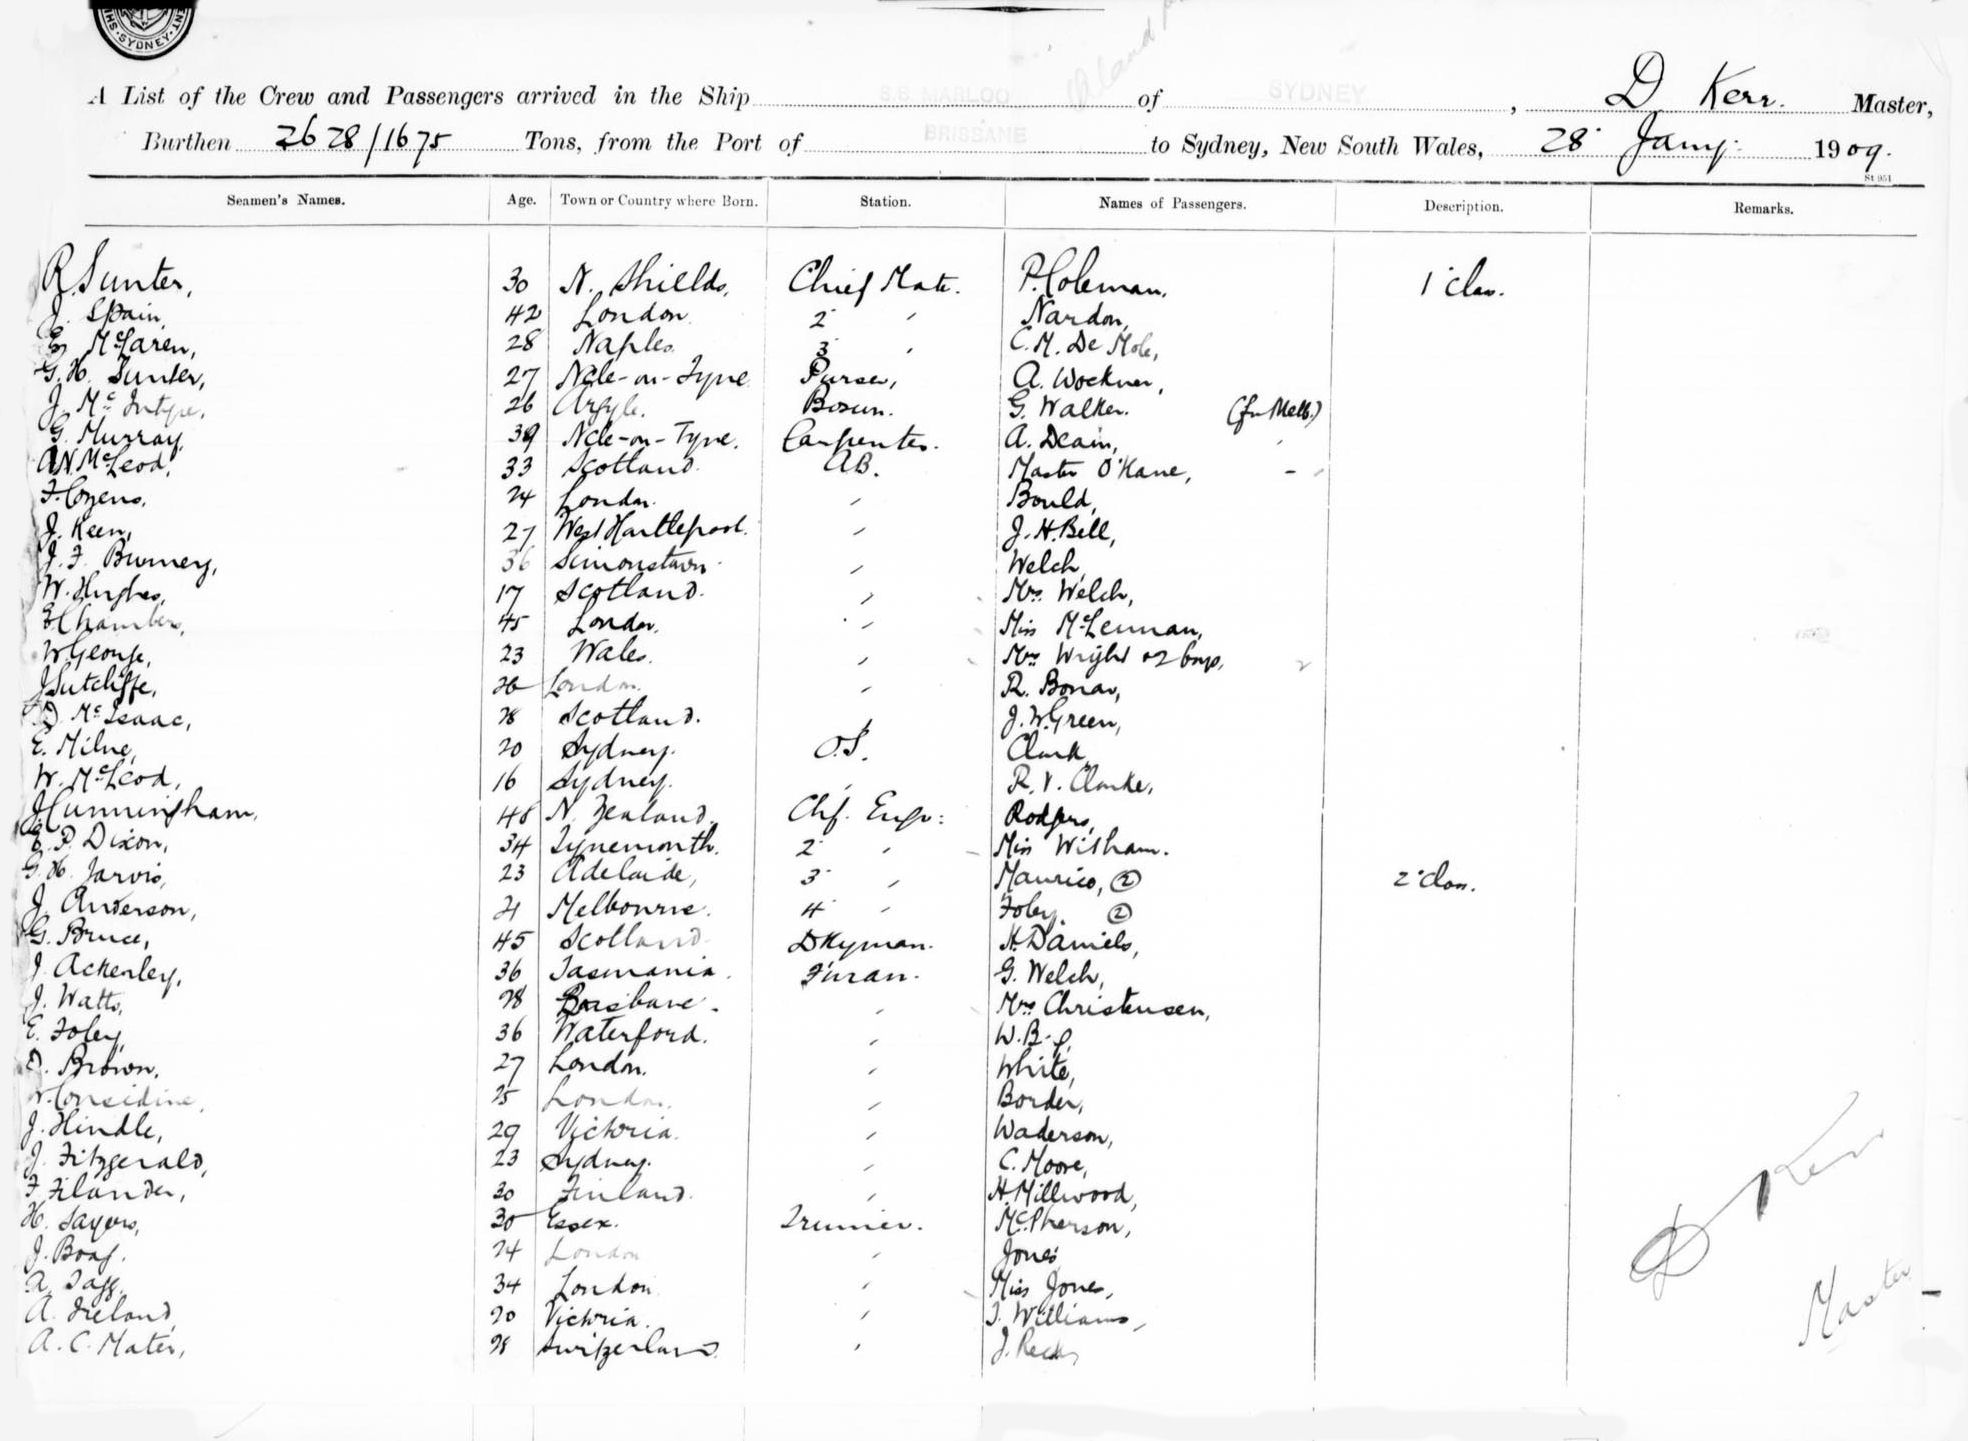 SYDNEY
A List of the Crew and Passengers arrived in the Ship S.S. MARLOO of SYDNEY, D Kerr. Master,
Burthen 2628/1675 Tons, from the Port of BRISBANE to Sydney, New South Wales, 28 Jany. 1909.
St 951
Seamen's Names. Age. Town or Country where Born. Station. Names of Passengers. Description. Remarks.
R. Sunter, 30 N. Shields, Chief Mate. P. Coleman, 1 Class.
J. Spain, 42 London 2 " Nardon,
McLaren, 28 Naples 3 " C. M. De Mole,
G. H. Sunter, 27 Ncle-on-Tyne Purser, A. Wockner,
J. McIntyre, 26 Argyle. Bosun. G. Walker. (for Melb.)
G. Murray, 39 Ncle-on-Tyne. Carpenter. A. Deain, "
A. N. McLeod, 33 Scotland. AB. Master O'Kane, - "
F. Cozens, 24 London. " Bould,
J. Keen, 27 West Hartlepool. " J. H. Bell,
J. F. Burney, 36 Simonstown. " Welch,
W. Hughes, 17 Scotland. " Mrs. Welch,
E. Chambers, 45 London. " Miss McLennan,
W George, 23 Wales. " Mrs Wright & 2 boys, 2
J Sutcliffe, 26 London. " R. Bonar,
D. McIsaac, 28 Scotland. " J. W. Green,
E. Milne, 20 Sydney. O.S. Clark,
W. McLeod, 16 Sydney. " R. V. Clarke,
J. Cunningham, 48 N. Zealand. Chf. Engr: Rodgers,
E. P. Dixon, 34 Tynemouth. 2 " Miss Witham.
G. H. Jarvis, 23 Adelaide, 3 " Maurico, (2) 2 Class.
J. Anderson, 21 Melbourne. 4 " Foley. (2)
G. Bruce, 45 Scotland. Dkyman. H. Daniels,
J. Ackerley, 36 Tasmania. Fman. G. Welch,
J. Watts, 28 Brisbane. " Mrs Christensen,
E. Foley, 36 Waterford. "
D. Brown, 27 London. " White,
Considine, 25 London. " Border,
J. Hindle, 29 Victoria. " Waderson,
J. Fitzgerald, 23 Sydney. " C. Moore,
F. Filander, 30 Finland. " H. Millwood,
H. Sayers, 30 Essex. Trimmer. McPherson,
J. Boag. 24 London " Jones
A. Tagg. 34 London " Miss Jones,
A. Ireland, 20 Victoria. " T. Williams,
A. C. Mater, 28 Switzerland. " J.
D Kerr
Master